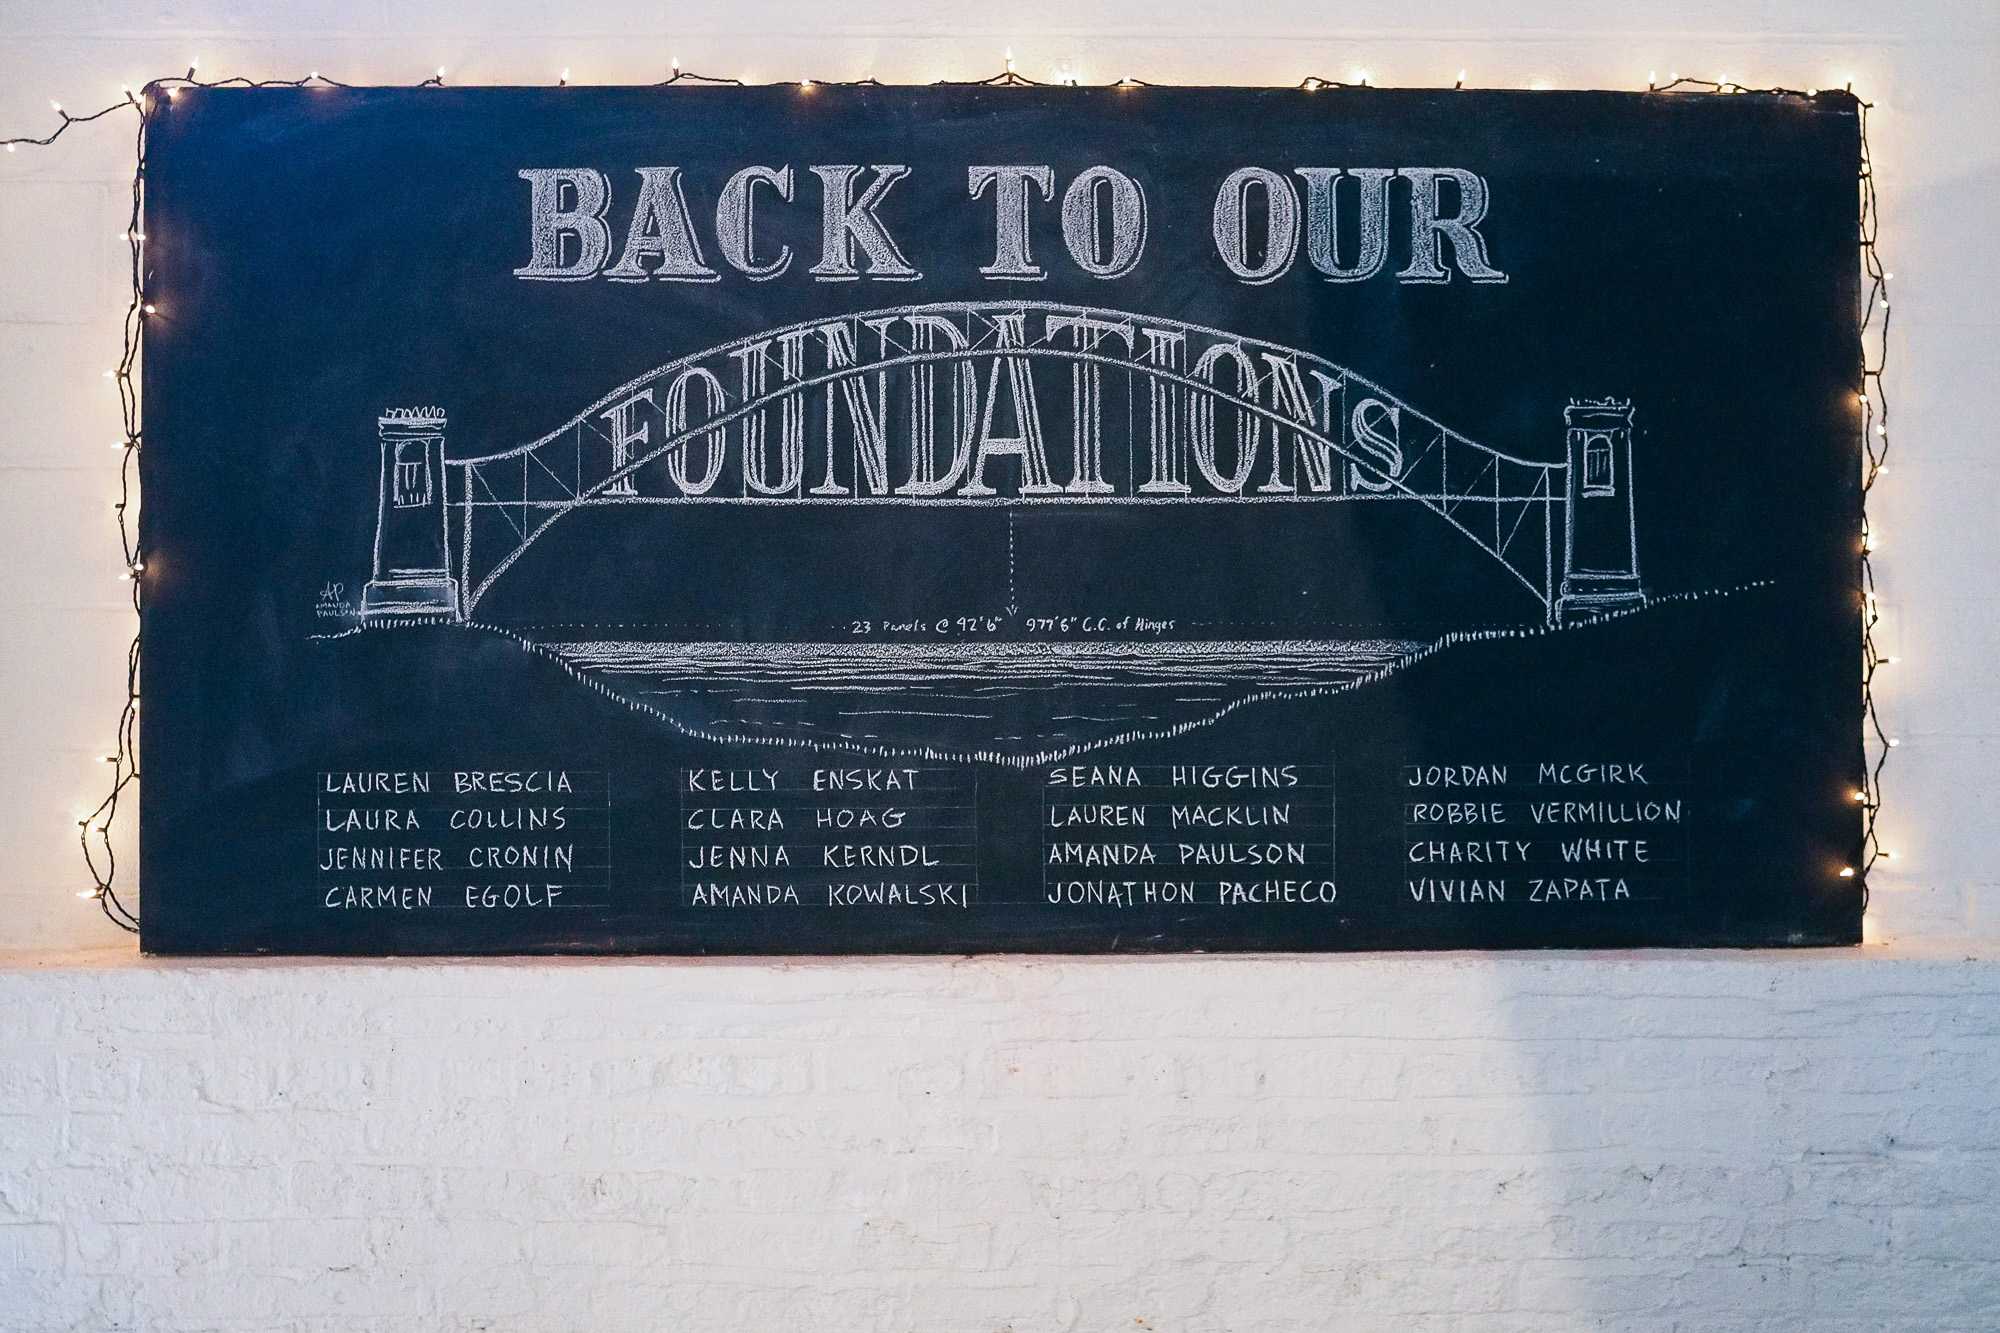 BACK TO OUR
FOUNDATIONS
AP
AMANDA
PAULSON
23 Panels @ 42'6" 977'6" C.C. of Hinges
LAUREN BRESCIA
LAURA COLLINS
JENNIFER CRONIN
CARMEN EGOLF
KELLY ENSKAT
CLARA HOAG
JENNA KERNDL
AMANDA KOWALSKI
SEANA HIGGINS
LAUREN MACKLIN
AMANDA PAULSON
JONATHON PACHECO
JORDAN MCGIRK
ROBBIE VERMILLION
CHARITY WHITE
VIVIAN ZAPATA